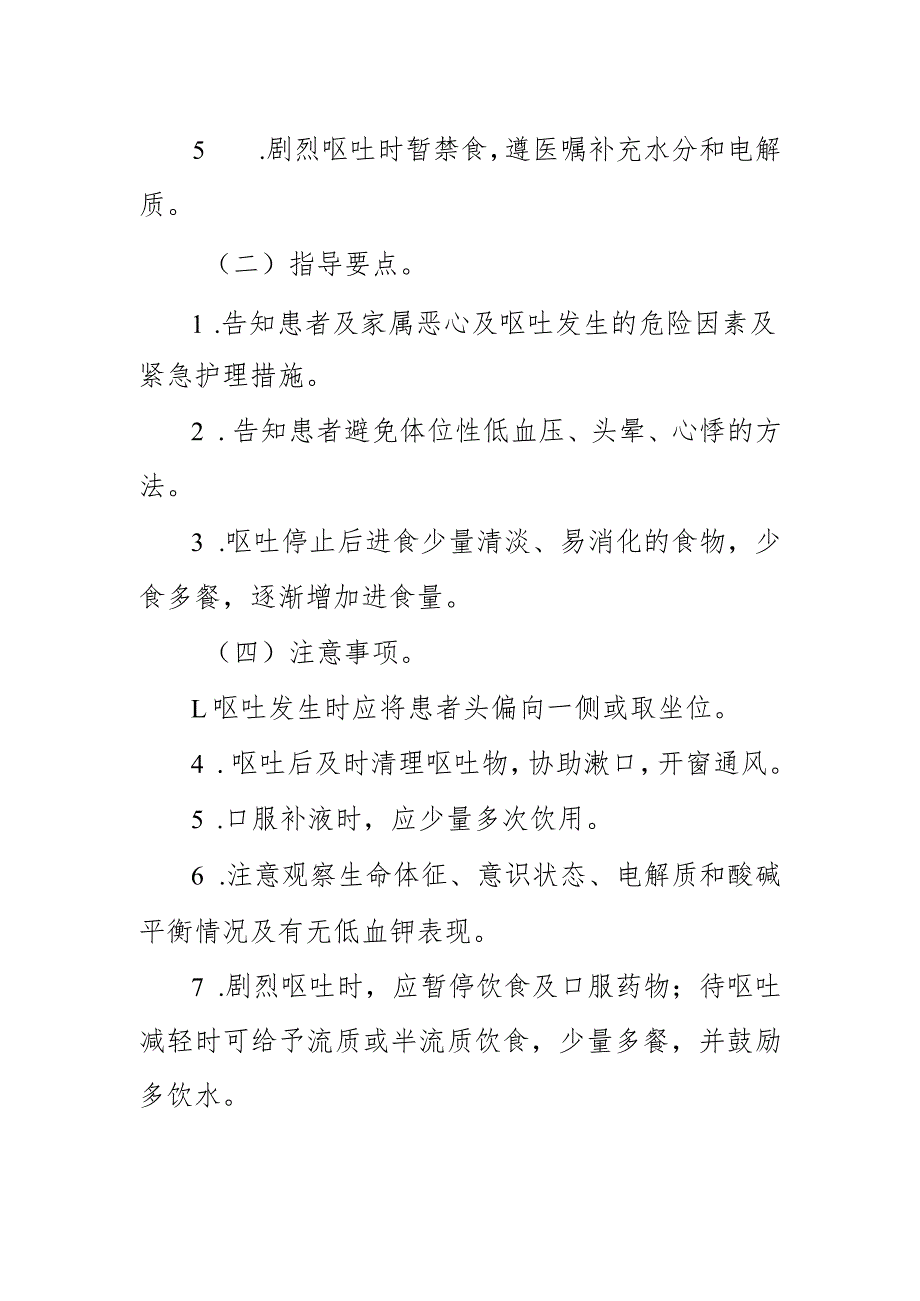 5 .剧烈呕吐时暂禁食,遵医嘱补充水分和电解
质。
（二）指导要点。
1 .告知患者及家属恶心及呕吐发生的危险因素及
紧急护理措施。
2 .告知患者避免体位性低血压、头晕、心悸的方
法。
3 .呕吐停止后进食少量清淡、易消化的食物，少
食多餐，逐渐增加进食量。
（四）注意事项。
L呕吐发生时应将患者头偏向一侧或取坐位。
4 .呕吐后及时清理呕吐物,协助漱口,开窗通风。
5 .口服补液时，应少量多次饮用。
6 .注意观察生命体征、意识状态、电解质和酸碱
平衡情况及有无低血钾表现。
7 .剧烈呕吐时，应暂停饮食及口服药物；待呕吐
减轻时可给予流质或半流质饮食，少量多餐，并鼓励
多饮水。